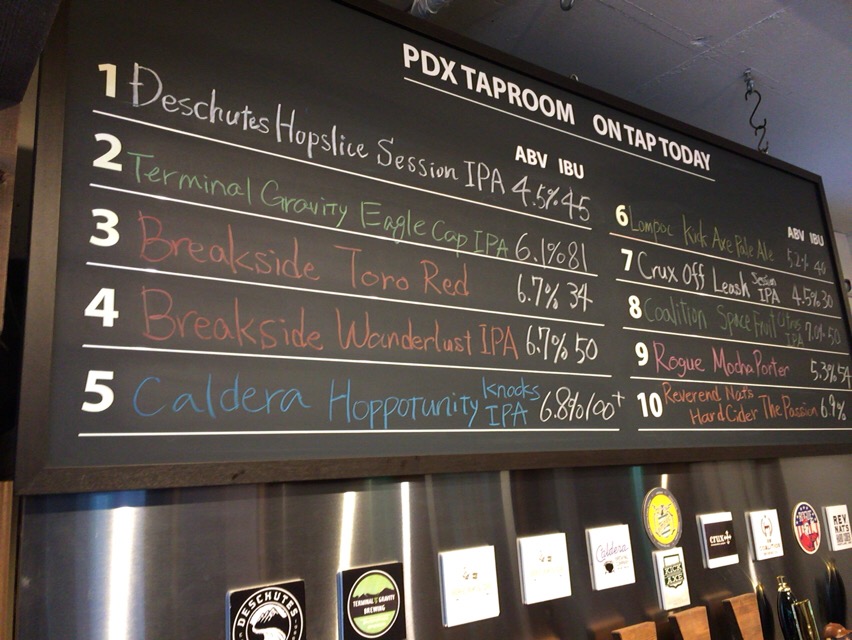 PDX TAPROOM ON TAP TODAY
ABV IBU
1 Deschutes Hopslice Session IPA 4.5% 45
2 Terminal Gravity Eagle Cap IPA 6.1% 81
3 Breakside Toro Red 6.7% 34
4 Breakside Wanderlust IPA 6.7% 50
5 Caldera Hoppotunity Knocks IPA 6.8% 100+
ABV IBU
6 Lompoc Kick Axe Pale Ale 5.2% 40
7 Crux Off Leash Session IPA 4.5% 30
8 Coalition Space Fruit Citrus IPA 7.0% 50
9 Rogue Mocha Porter 5.3% 54
10 Reverend Nat's Hard Cider The Passion 6.9%
DESCHUTES
TERMINAL GRAVITY
BREWING
Caldera
crux
COALITION
REV.
NAT'S
HARD
CIDER